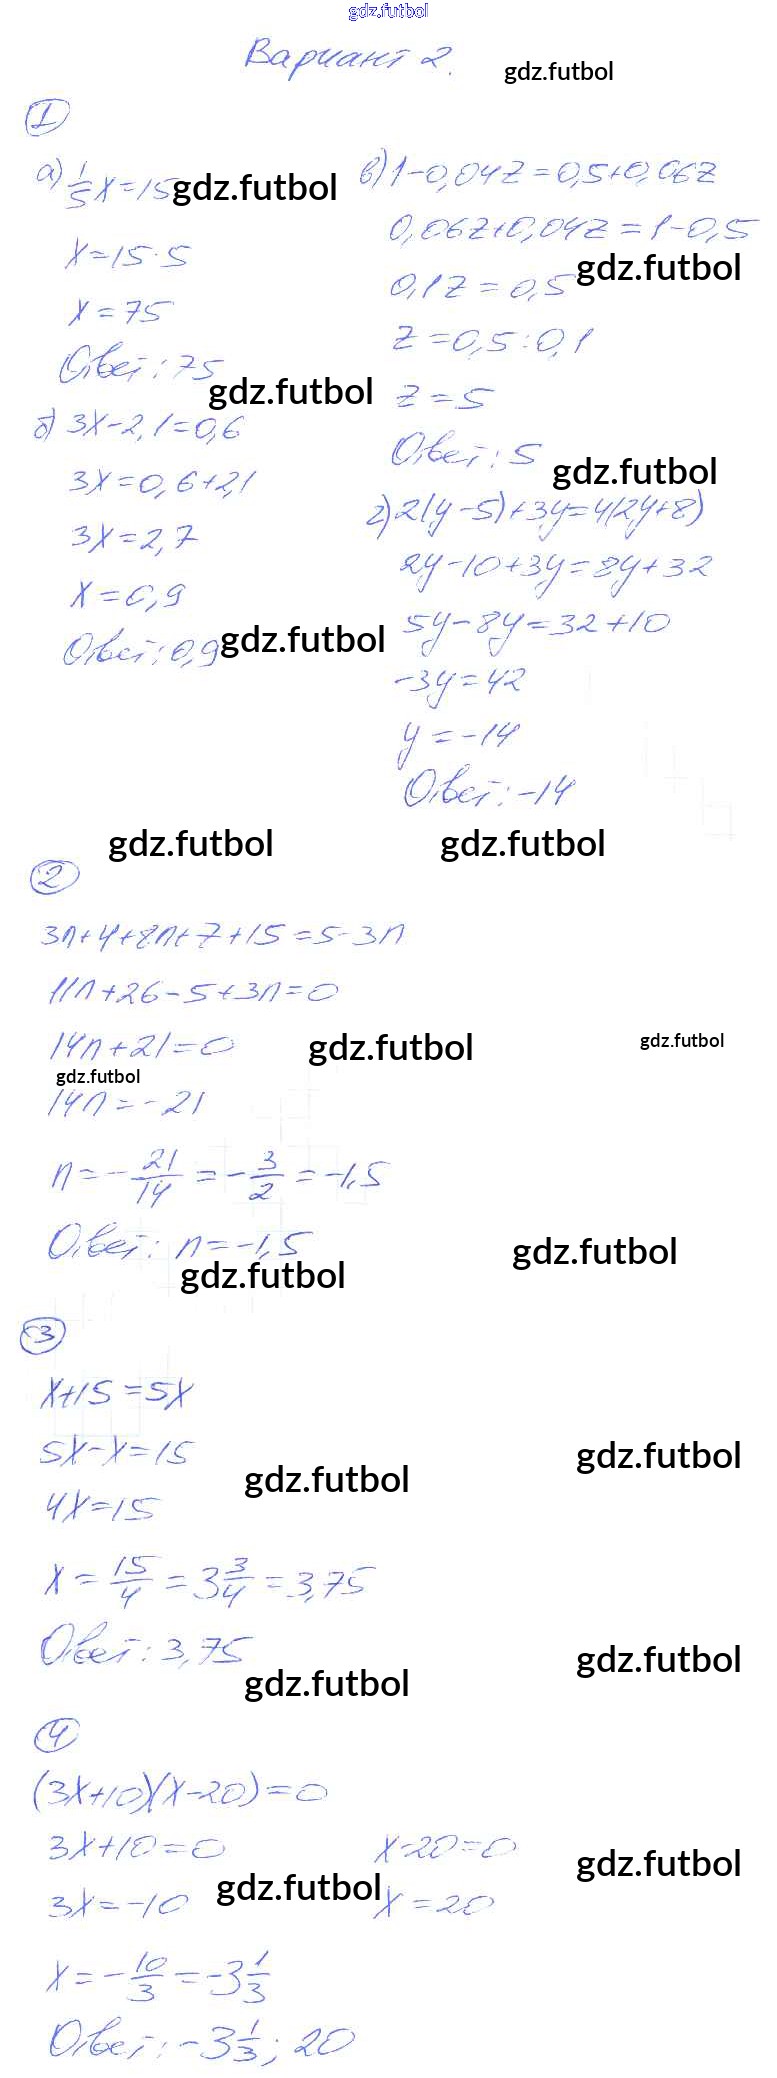 gdz.futbol
Вариант 2.
gdz.futbol
1
а) 1/5 x = 15
gdz.futbol
x = 15 · 5
x = 75
Ответ: 75
gdz.futbol
б) 3x - 2,1 = 0,6
3x = 0,6 + 2,1
3x = 2,7
x = 0,9
Ответ: 0,9
gdz.futbol
в) 1 - 0,04z = 0,5 + 0,06z
0,06z + 0,04z = 1 - 0,5
gdz.futbol
0,1z = 0,5
z = 0,5 : 0,1
z = 5
Ответ: 5
gdz.futbol
г) 2(y - 5) + 3y = 4(2y + 8)
2y - 10 + 3y = 8y + 32
5y - 8y = 32 + 10
-3y = 42
y = -14
Ответ: -14
gdz.futbol
gdz.futbol
2
3n + 4 + 8n + 7 + 15 = 5 - 3n
11n + 26 - 5 + 3n = 0
14n + 21 = 0
gdz.futbol
gdz.futbol
gdz.futbol
14n = -21
n = - 21/14 = - 3/2 = -1,5
Ответ: n = -1,5
gdz.futbol
gdz.futbol
3
x + 15 = 5x
5x - x = 15
gdz.futbol
gdz.futbol
4x = 15
x = 15/4 = 3 3/4 = 3,75
Ответ: 3,75
gdz.futbol
gdz.futbol
4
(3x + 10)(x - 20) = 0
3x + 10 = 0
x - 20 = 0
gdz.futbol
3x = -10
gdz.futbol
x = 20
x = - 10/3 = -3 1/3
Ответ: -3 1/3; 20